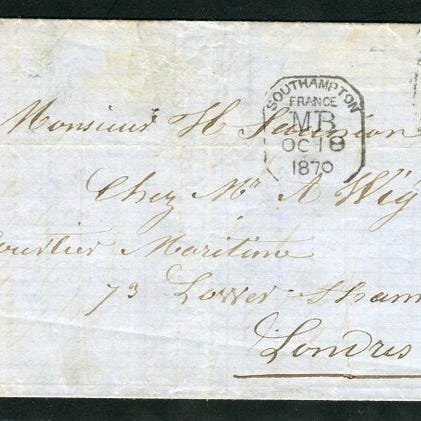 SOUTHAMPTON
FRANCE
MB
OC 18
1870
Monsieur H
Chez Mr A Wig
Courtier Maritime
73 Lower Tham
Londres